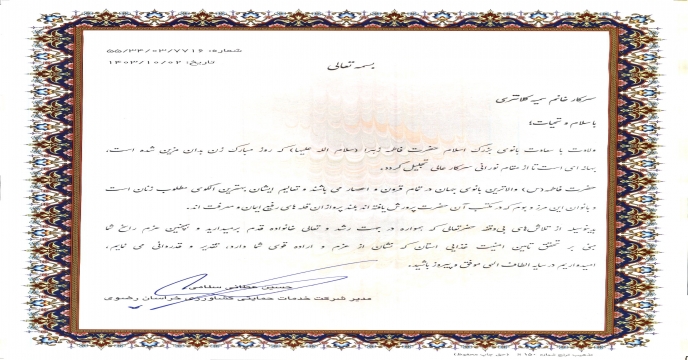 شماره: ۵۵/۳۴/۰۳/۷۷۱۶
تاریخ: ۱۴۰۳/۱۰/۰۲
بسمه تعالی
سرکار خانم سمیه کلانتری
با سلام و تحیات؛
ولادت با سعادت بانوی بزرگ اسلام حضرت فاطمه زهرا (سلام الله علیها) که روز مبارک زن بدان مزین شده است،
بهانه ای است تا از مقام نورانی سرکار عالی تجلیل گردد.
حضرت فاطمه (س) والاترین بانوی جهان در تمام قرون و اعصار می باشند و تعالیم ایشان بهترین الگوی مطلوب زنان است
و بانوان این مرز و بوم که در مکتب آن حضرت پرورش یافته اند بلند پروازان قله های رفیع ایمان و معرفت اند.
بدینوسیله از تلاش‌های بی‌وقفه حضرتعالی که همواره در جهت رشد و تعالی خانواده قدم برمیدارید و همچنین عزم راسخ شما
مبنی بر تحقق تامین امنیت غذایی استان که نشان از عزم و اراده قوی شما دارد، تقدیر و قدردانی می نمایم.
امیدواریم در سایه الطاف الهی موفق و پیروز باشید.
حسین عطائی سلامی
مدیر شرکت خدمات حمایتی کشاورزی خراسان رضوی